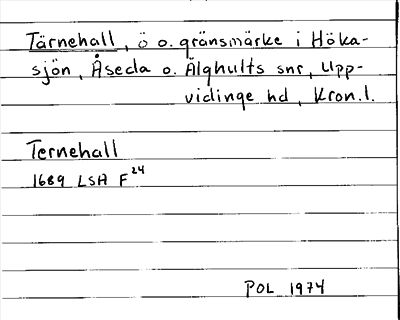 Tärnehall, ö o. gränsmärke i Höka-
sjön, Åseda o. Älghults snr, Upp-
vidinge hd, Kron.l.
Ternehall
1689 LSA F24
POL 1974